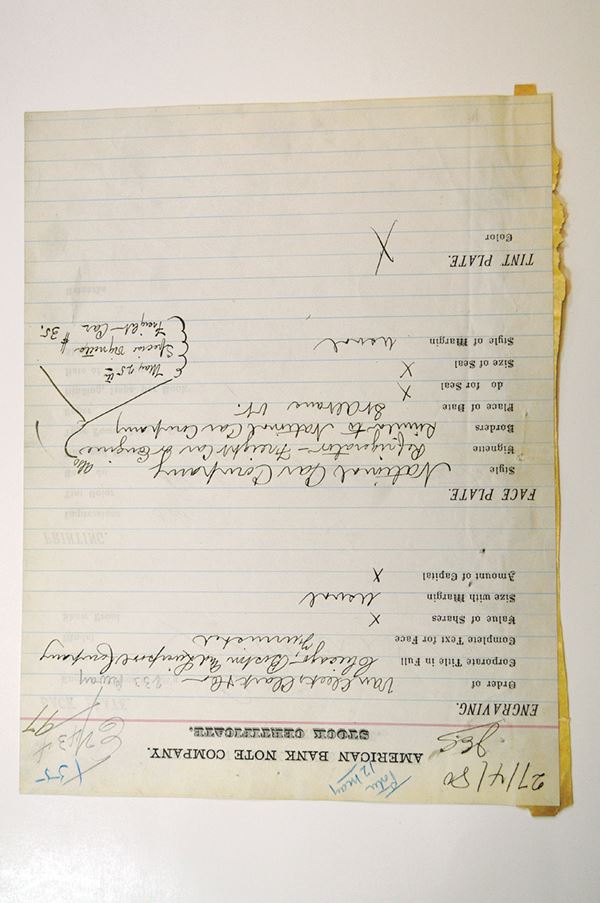 27/4/80
AMERICAN BANK NOTE COMPANY.
STOCK CERTIFICATE.
12 May
X35
E 7434
97
ENGRAVING.
Order of
Corporate Title in Full Chicago, Boston and Liverpool Company
Complete Text for Face Furnished
Value of Shares X
Size with Margin Usual
Amount of Capital X
FACE PLATE.
Style National Car Company
Vignette Refrigerator - Freight Car & Engine
Borders Similar to National Car Company
Place of Date St Albans Vt.
do for Seal X
Size of Seal X
Style of Margin Usual
May 25th
Special Vignette
Freight Car
$35.
TINT PLATE.
Color X
PRINTING.